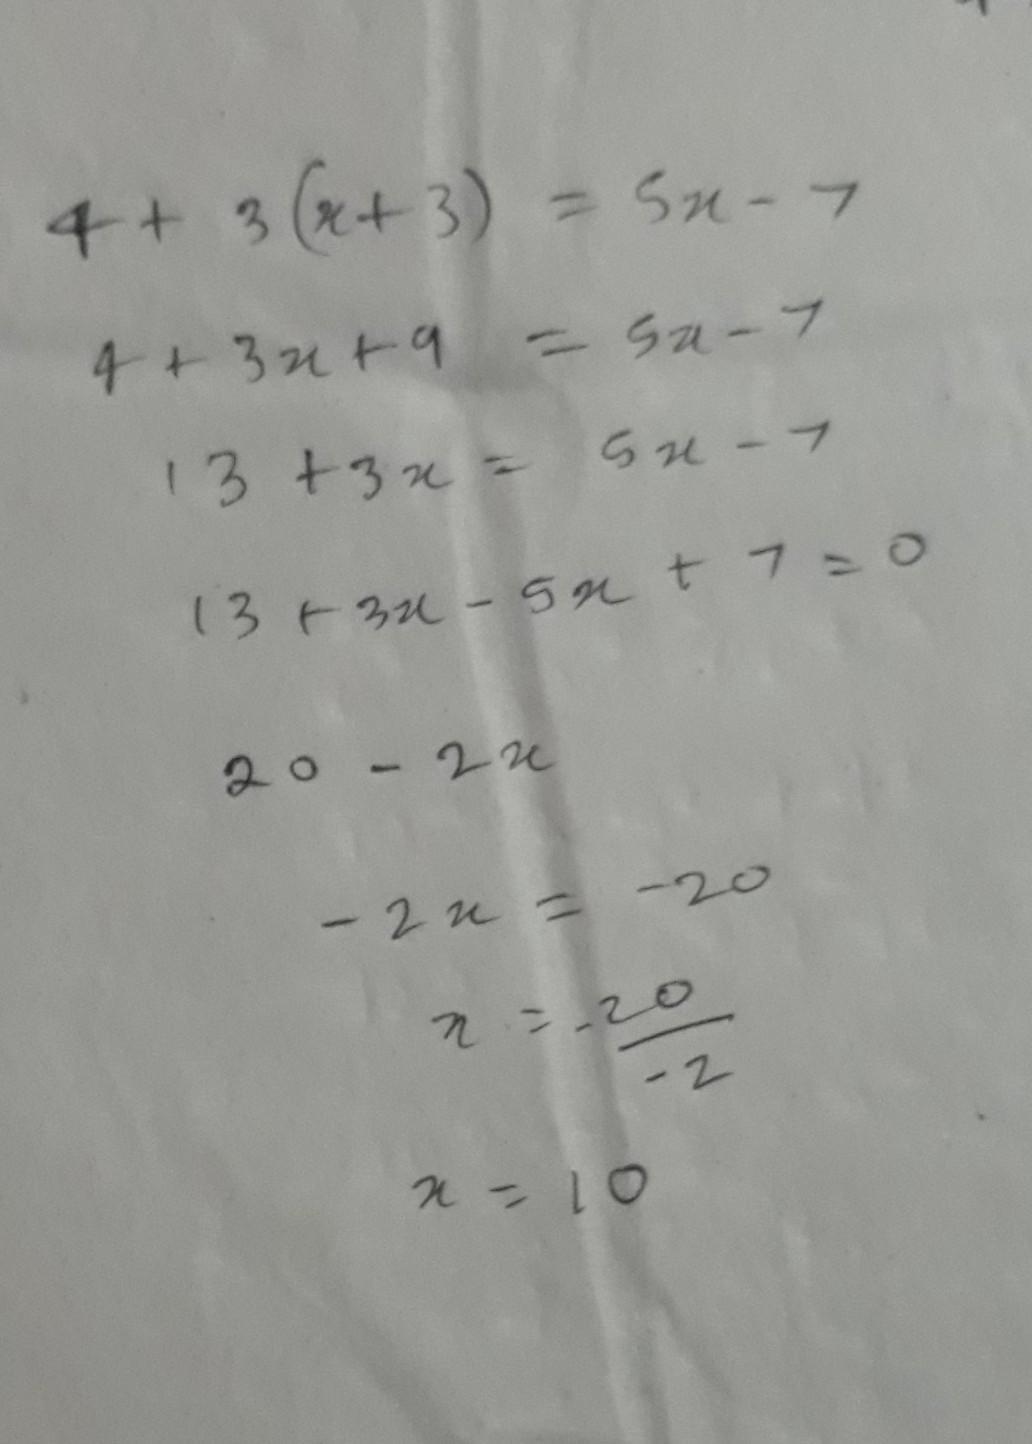 4 + 3(x+3) = 5x - 7
4 + 3x + 9 = 5x - 7
13 + 3x = 5x - 7
13 + 3x - 5x + 7 = 0
20 - 2x
-2x = -20
x = -20/-2
x = 10